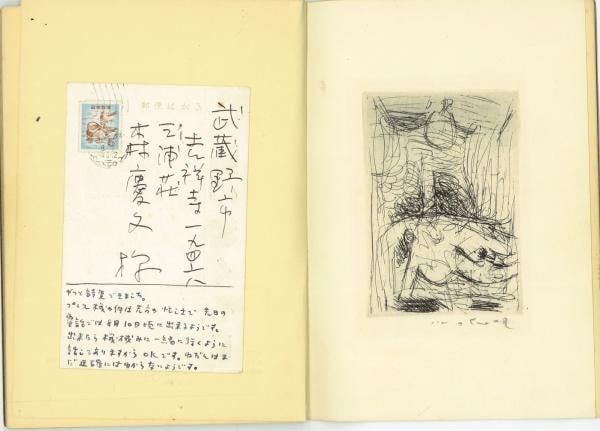 郵便はがき
武蔵野市
吉祥寺一九四六
三浦荘
森慶文様
やっと詩集できました。
プレス機の件は先方の忙しさで先日の
電話では8月10日頃に出来るようです。
出来たら機械みに一緒に行くように
話してありますからOKです。ねだんはま
だ正確には分からないようです。